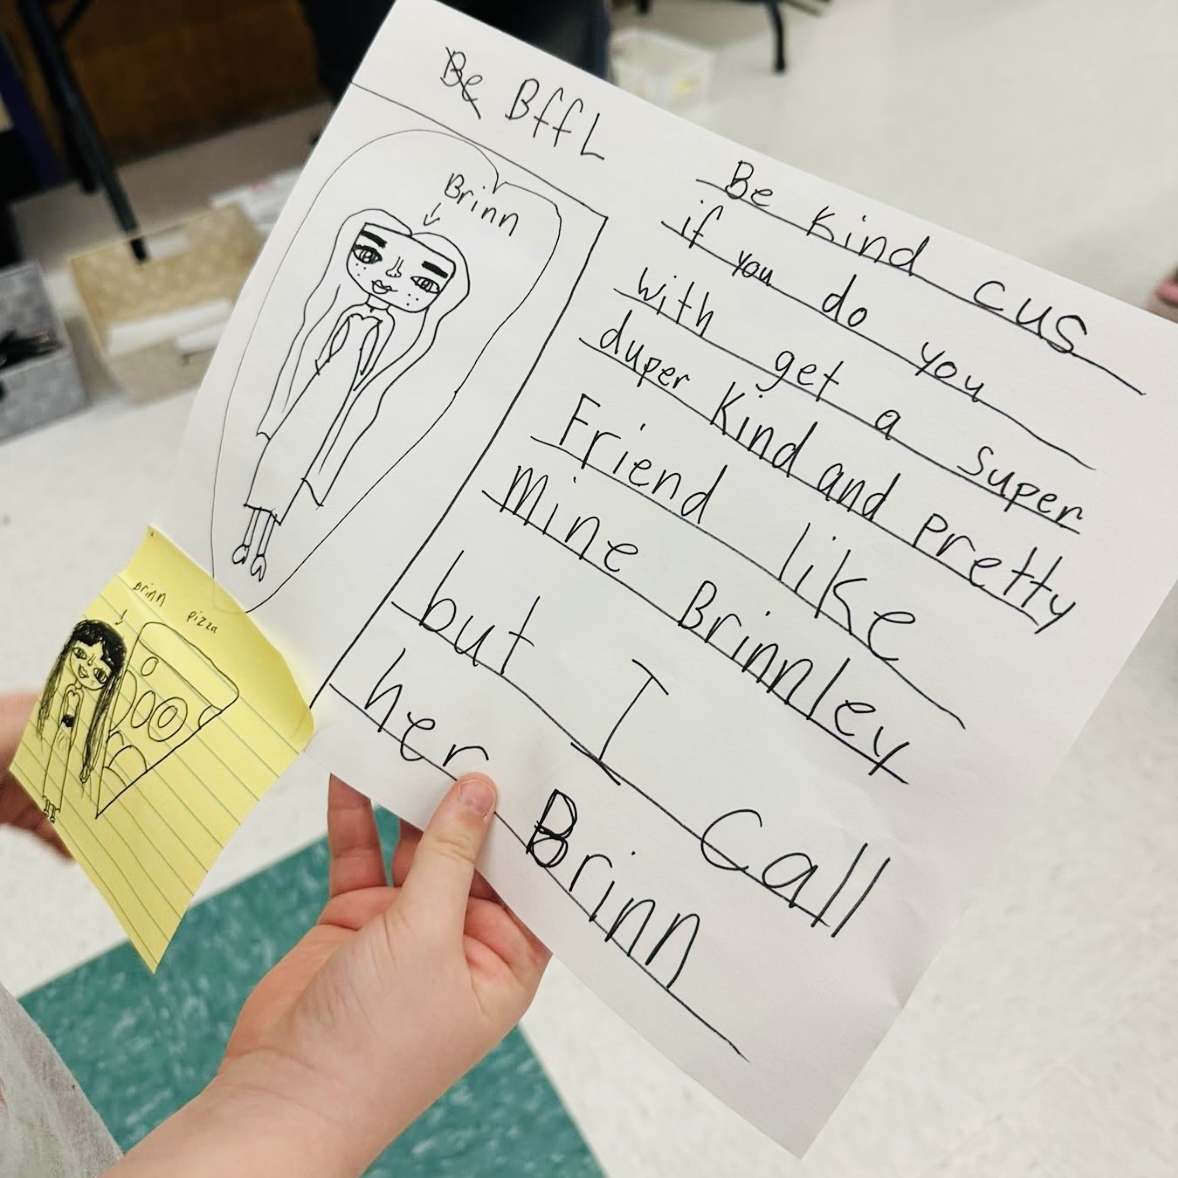 Be BffL
Brinn
Be Kind cus
if you do you
with get a super
duper Kind and pretty
Friend like
mine Brinnley
but I Call
her Brinn
Brinn
pizza